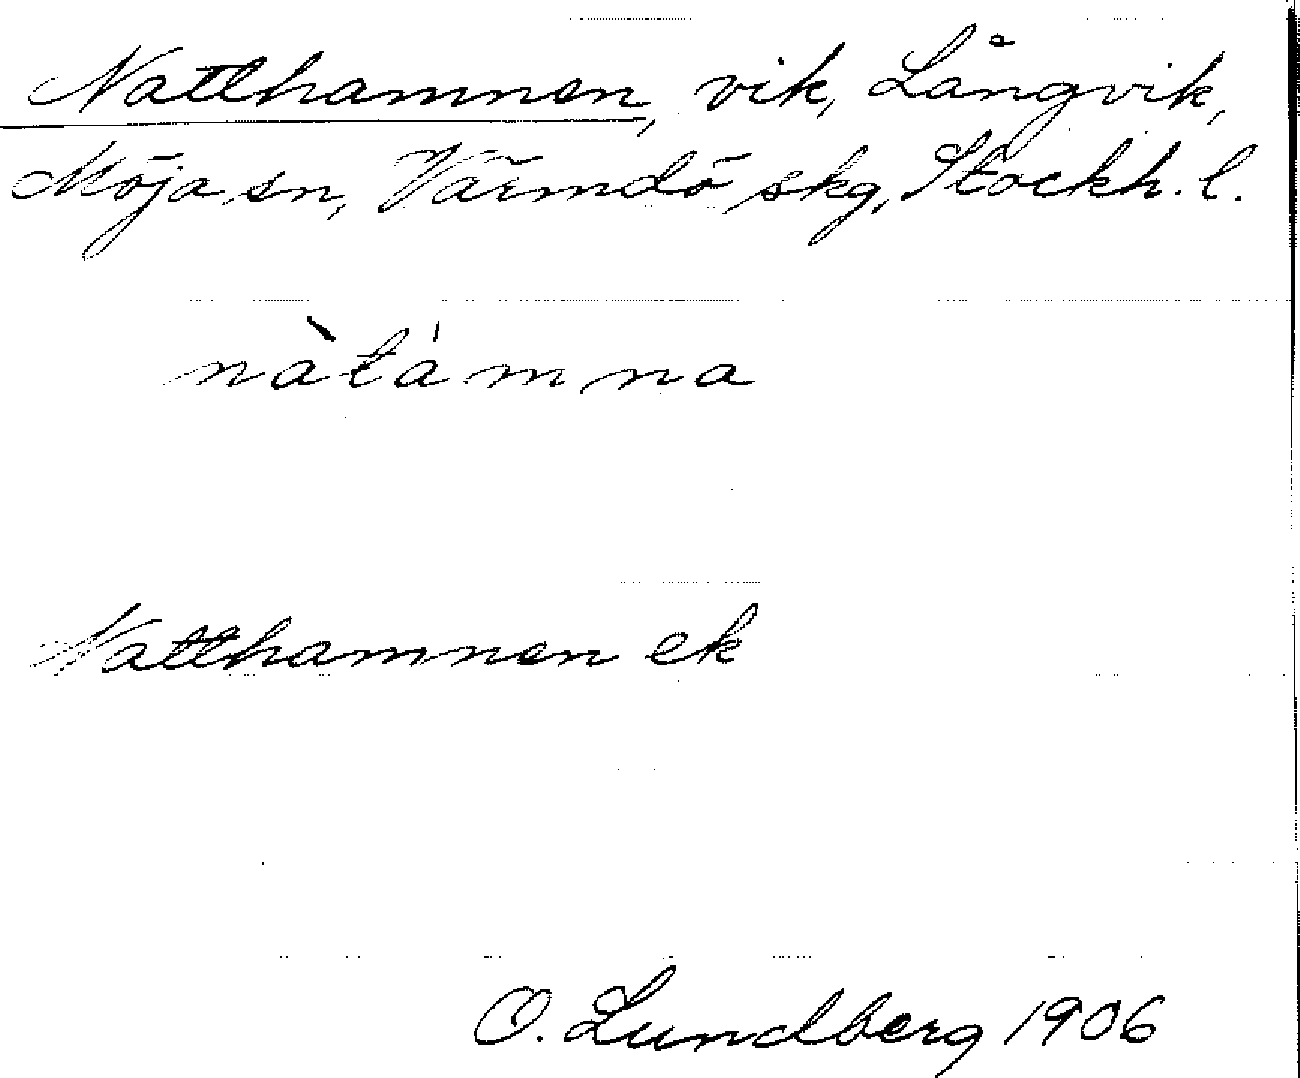 Natthamnen, vik, Långvik,
Möja sn, Värmdö skg, Stockh. l.
nàtámna
Natthamnen ek
O. Lundberg 1906